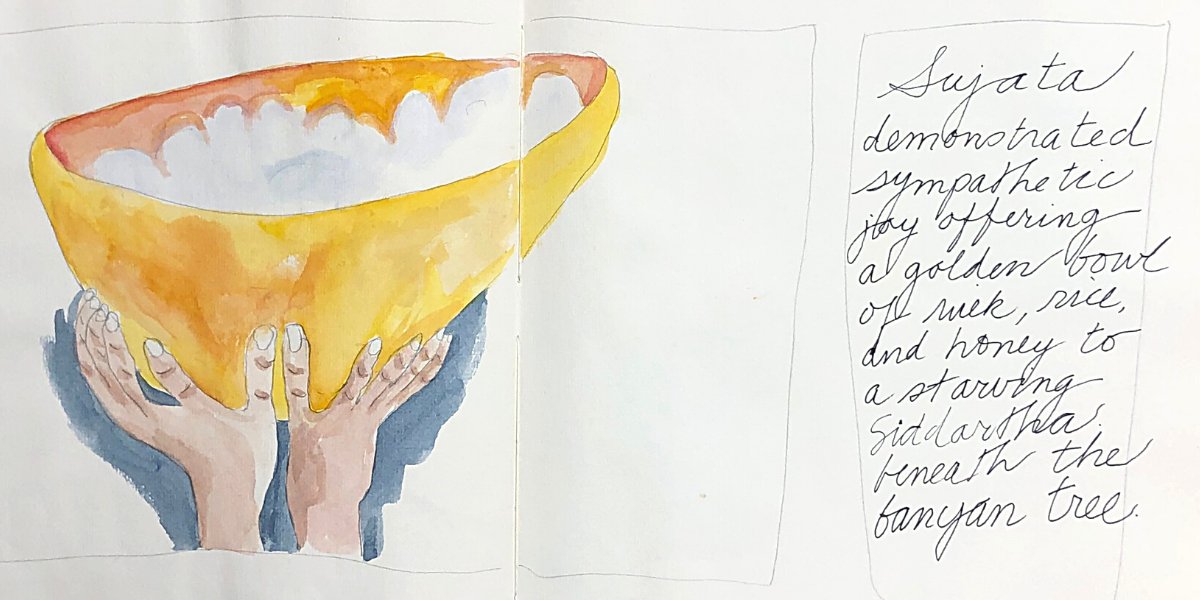 Sujata
demonstrated
sympathetic
joy offering
a golden bowl
of milk, rice,
and honey to
a starving
Siddartha
beneath the
banyan tree.